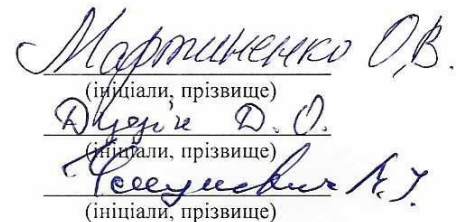 Мартиненко О.В.
(ініціали, прізвище)
Д. О.
(ініціали, прізвище)
(ініціали, прізвище)